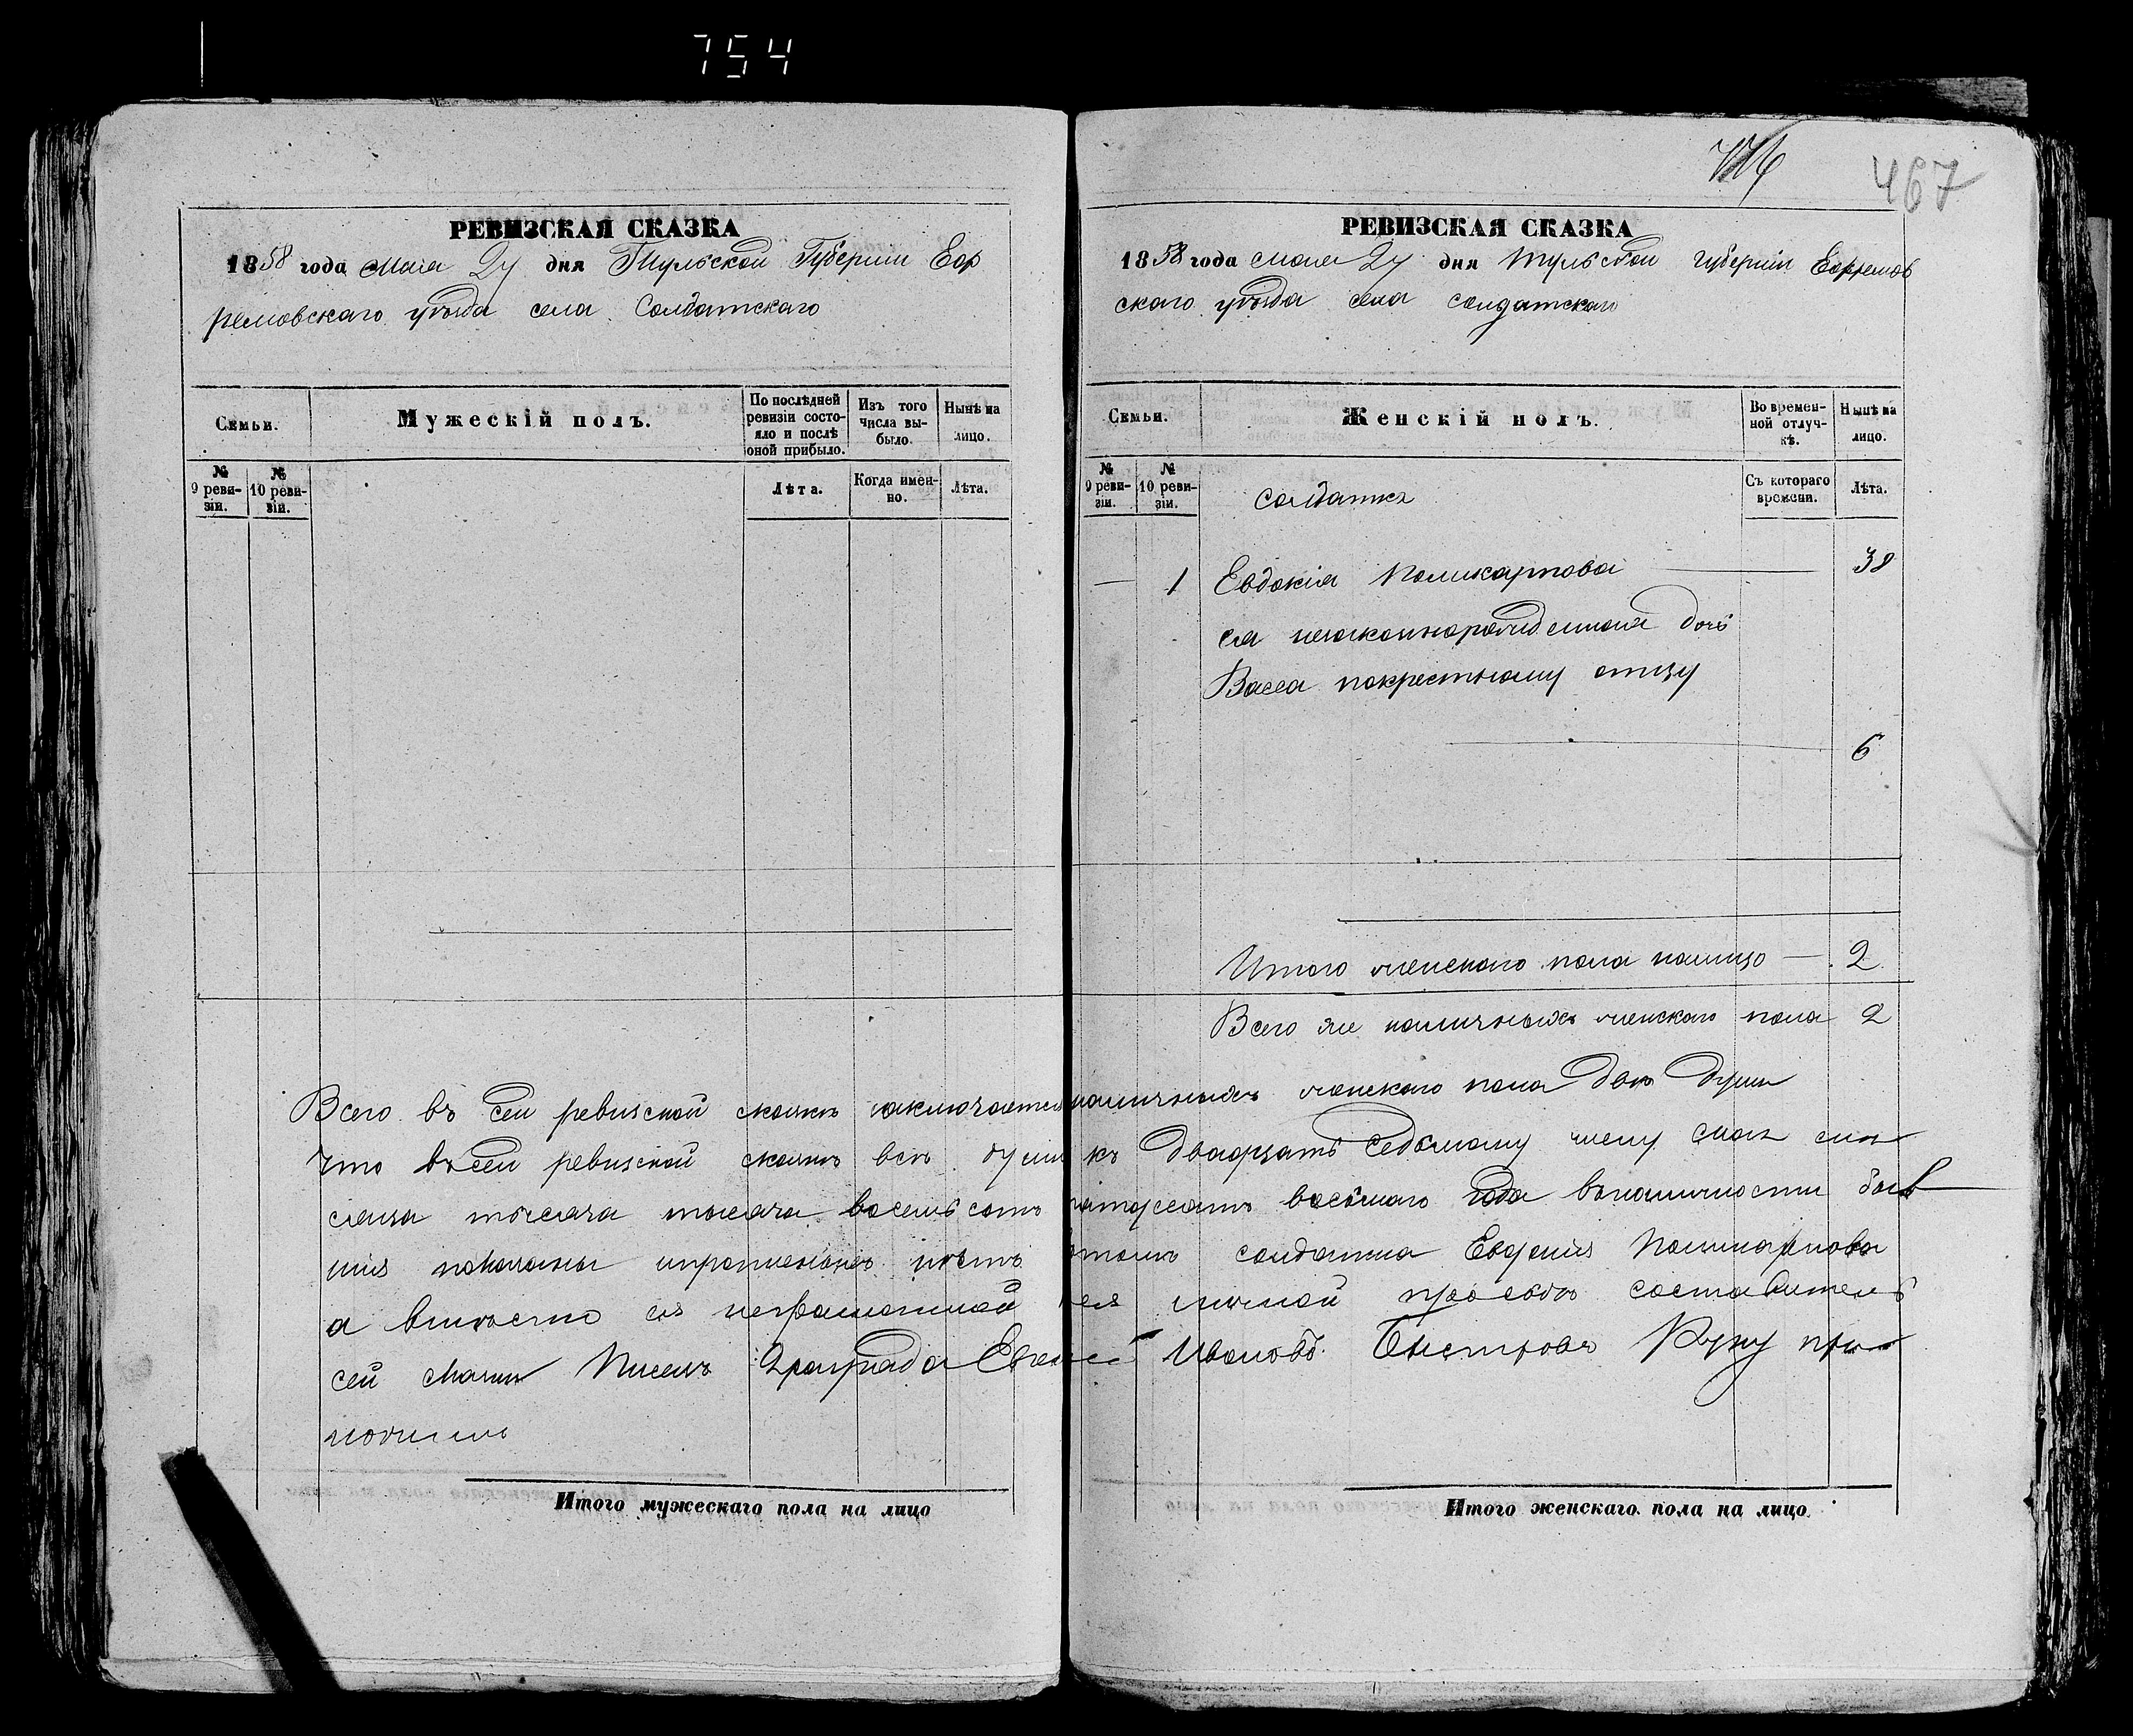 754
467
РЕВИЗСКАЯ СКАЗКА
1858 года Мая 27 дня Тульской Губернии Еф
ремовскаго уѣзда села Солдатскаго
Семьи.
Мужескій полъ.
По послѣдней ревизіи состояло и послѣ оной прибыло.
Изъ того числа выбыло.
Нынѣ на лицо.
№ 9 ревизіи.
№ 10 ревизіи.
Лѣта.
Когда именно.
Лѣта.
РЕВИЗСКАЯ СКАЗКА
1858 года мая 27 дня Тульской губернии Ефремов
скаго уѣзда села солдатскаго
Семьи.
Женскій полъ.
Во временной отлучкѣ.
Нынѣ на лицо.
№ 9 ревизіи.
№ 10 ревизіи.
Съ котораго времени.
Лѣта.
солдатка
1 Евдокія Поликарпова 38
ея незаконнорожденная дочь
Васса покрестному отцу
6
Итого женскаго пола налицо 2
Всего же наличныхъ женскаго пола 2
Всего въ сей ревизской сказкѣ заключается наличныхъ женскаго пола двѣ души
что въ сей ревизской сказкѣ всѣ души къ двадцать седьмому числу мая
тысяча восемьсотъ пятдесятъ восьмаго года вналичности быв
шія показаны нѣтъ солдатка Поликарпова
а вмѣсто ея неграмотной личной прозьбѣ составитель
сей сказки Писецъ 2 разряда Ивановъ Быстровъ Руку при
ложилъ
Итого мужескаго пола на лицо
Итого женскаго пола на лицо